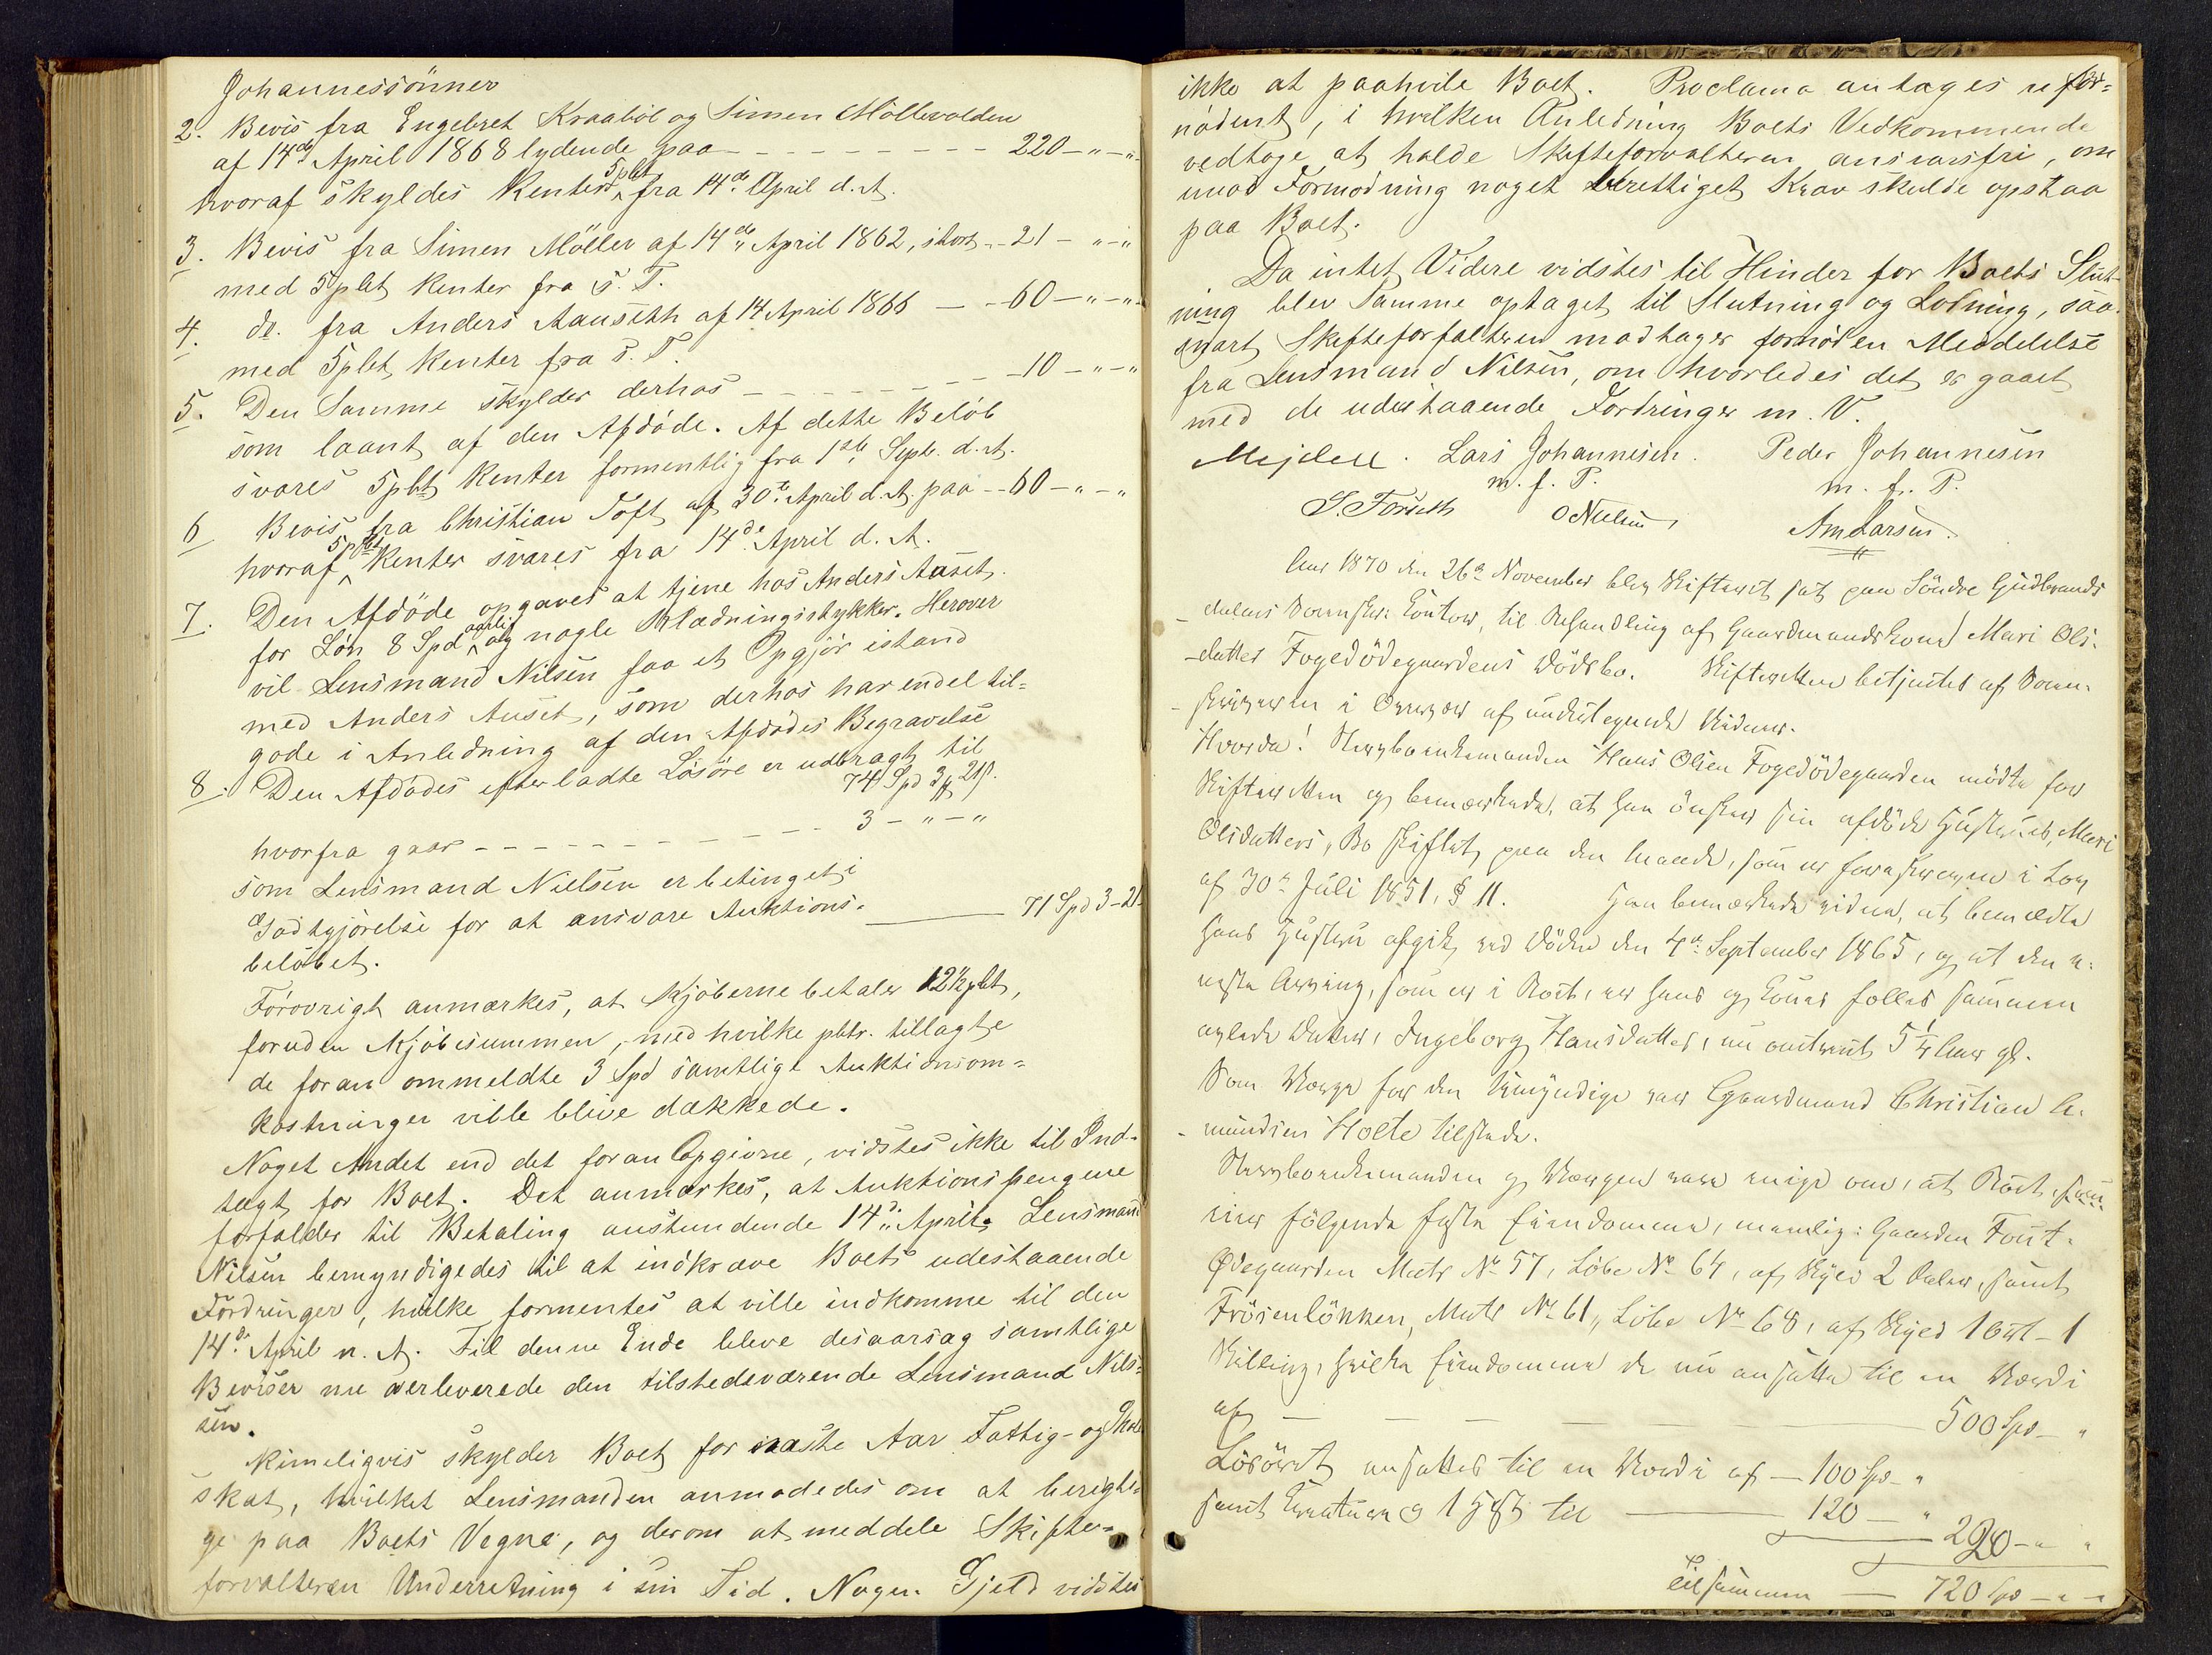 Johannessönner
2. Bevis fra Engebret Kraaböl og Simen Möllevolden
af 14de April 1868 lydende paa - - - - - - - - - 220 - " - "
hvoraf skyldes Renter 5 pCt fra 14de April d. A.
3. Bevis fra Simen Möller af 14de April 1862, stort - - 21 - " - "
med 5 pCt Renter fra s. T.
4. do. fra Anders Aauseth af 14 April 1866 - - - 60 - " - "
med 5 pCt Renter fra s. T.
5. Den Samme skylder derhos - - - - - - - 10 - " - "
som laant af den Afdöde. Af dette Belöb
svares 5 pCt Renter formentlig fra 1ste Septr. d. A.
6 Bevis fra Christian Toft af 30te April d. A. paa - - 60 - " - "
hvoraf 5 pCt Renter svares fra 14de April d. A.
7. Den Afdöde opgaves at tjene hos Anders Aaset
for Lön 8 Spd aarlig og nogle Klædningsstykker. Herover
vil Lensmand Nilsen faa et Opgjör istand
med Anders Auset, som derhos har endel til=
gode i Anledning af den Afdödes Begravelse
8. Den Afdödes efterladte Lösöre er udbragt til
74 Spd 3 # 21 ß.
hvorfra gaar - - - - - - - - - 3 - " - "
som Lensmand Nielsen er betinget i
Godtgjörelse for at ansvare Auktions-
belöbet. 71 Spd 3 - 21
Forövrigt anmærkes, at Kjöberne betaler 12½ pCt,
foruden Kjöbesummen, med hvilke pCtr. tillagte
de foran ommeldte 3 Spd samtlige Auktionsom=
kostninger ville blive dækkede.
Noget Andet end det foran Opgivne, vidstes ikke til Ind-
tægt for Boet. Det anmærkes, at Auktionspengene
forfalder til Betaling anstundende 14de April. Lensmand
Nilsen bemyndigedes til at indkræve Boets udestaaende
Fordringer, hvilke formentes at ville indkomme til den
14de April n. A. Til denne Ende bleve desaarsag samtlige
Beviser nu overleverede den tilstedeværende Lensmand Nils=
sen.
Rimeligvis skylder Boet for næste Aar Fattig- og Skole
skat, hvilket Lensmanden anmodedes om at berigti-
ge paa Boets Vegne, og derom at meddele Skifte-
forvalteren Underretning i sin Tid. Nogen Gjeld vidstes
ikke at paahvile Boet. Proclama antages ufor=
nödent, i hvilken Anledning Boets Vedkommende
vedtoge at holde Skifteforvalteren ansvarsfri, om
imod Formodning noget berettiget Krav skulde opstaa
paa Boet.
Da intet Videre vidstes til Hinder for Boets Slut-
ning blev Samme optaget til Slutning og Lodning, saa-
snart Skifteforfalteren modtager fornöden Meddelelse
fra Lensmand Nilsen, om hvorledes det er gaaet
med de udestaaende Fordringer m. V.
Mejdell. Lars Johannesen. Peder Johannesen
m. f. P. m. f. P.
S. Forseth O Nielsen Am Larsen.
Aar 1870 den 26de November blev Skifteret sat paa Söndre Gudbrands
dalens Sorenskr. Contor, til Behandling af Gaardmandskone Mari Ols-
datter Fogedödegaardens Dödsbo. Skifteretten betjentes af Soren-
skriveren i Overvær af undertegnede Vidner.
Hvorda! Stervboenkemanden Hans Olsen Fogedödegaarden mödte for
Skifteretten og bemærkede, at han önsker sin afdöde Hustrues, Mari
Olsdatters, Bo skiftet paa den Maade, som er foreskreven i Lov
af 30te Juli 1851, § 11. Han bemærkede videre, at bemeldte
hans Hustru afgik ved Döden den 4de September 1865, og at den e-
neste Arving, som er i Boet, er hans og Kones fælles sammen
avlede Datter, Ingeborg Hansdatter, nu omtrent 5¼ Aar gl.
Som Værge for den Umyndige var Gaardmand Christian A-
mundsen Holte tilstede.
Stervboenkemanden og Værgen vare enige om, at Boet,
eier fölgende faste Eiendomme, nemlig: Gaarden Fout-
Ödegaarden Matr No 57, Löbe No 64, af Skyld 2 Daler, samt
Frösenlökken, Matr No 61, Löbe No 68, af Skyld 1 Ort - 1
Skilling, hvilke Eiendomme de nu ansatte til en Værdi
af - - - - - 500 Spd - "
Lösöret ansattes til en Værdi af - 100 Spd - "
samt Creaturer og 1 Hest til - 120 - "
220 - " "
Tilsammen - 720 Spd - " - "